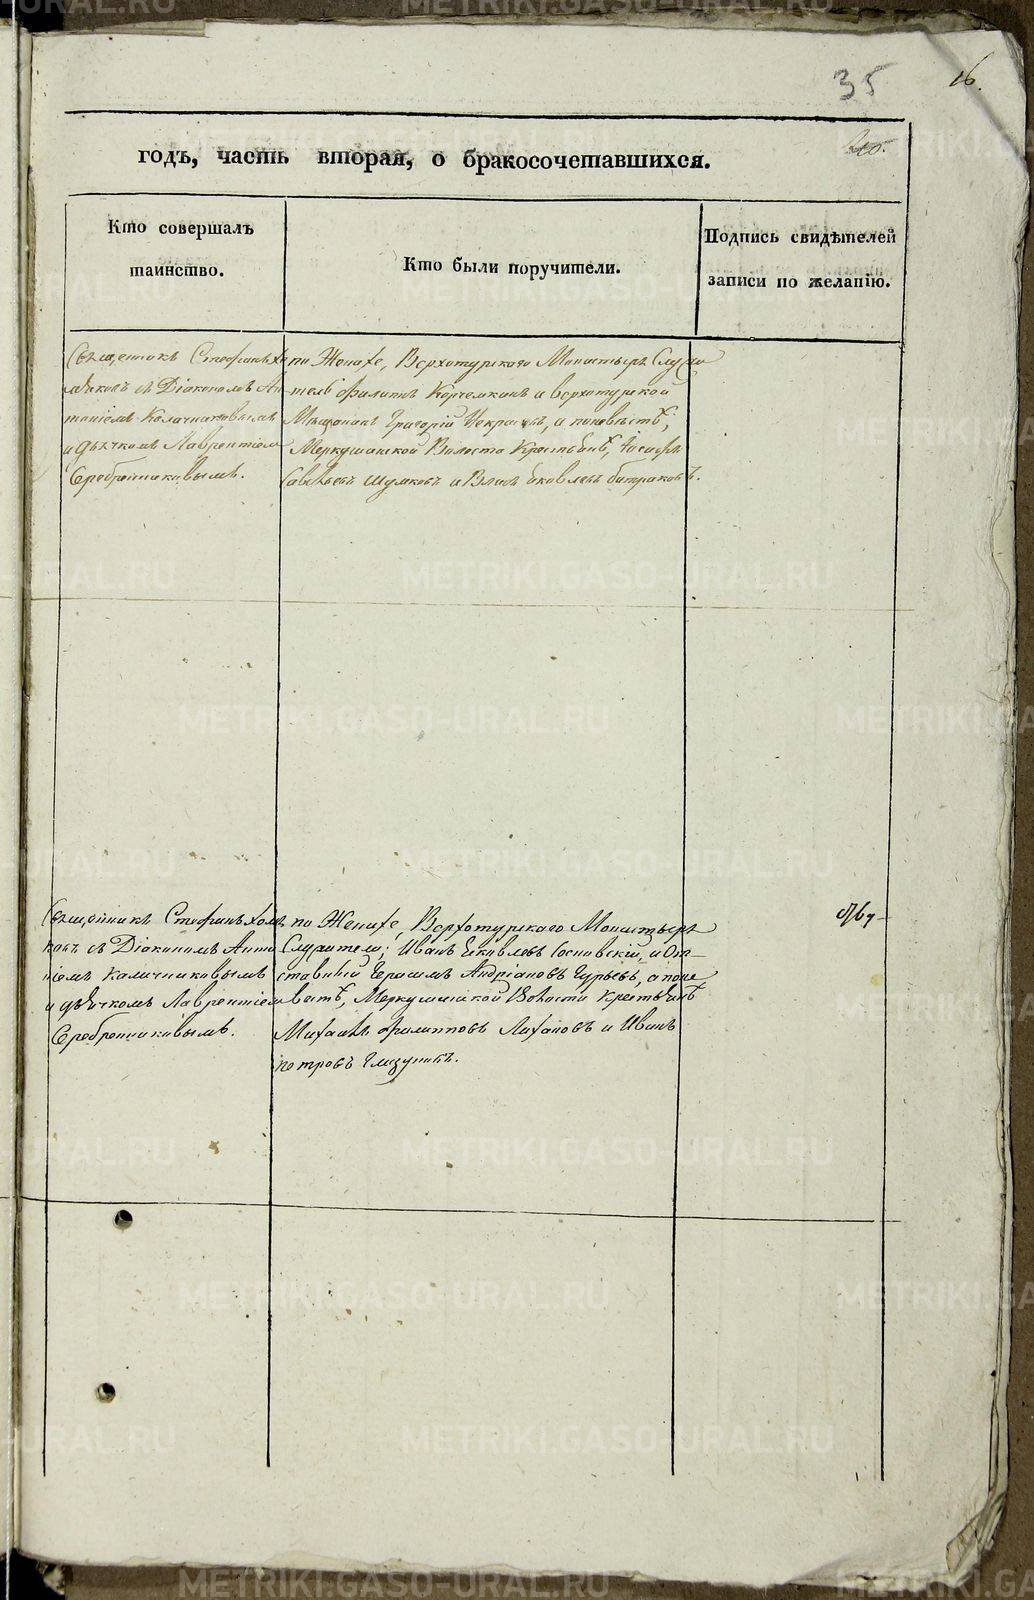 35
16.
годъ, часть вторая, о бракосочетавшихся.
Кто совершалъ
таинство.
Кто были поручители.
Подпись свидѣтелей
записи по желанію.
Священникъ Стефанъ Хо
мяковъ съ Діакономъ Ан
тоніемъ Калачниковымъ
и дьячкомъ Лаврентіем
Серебренниковымъ.
по Женихе, Верхотурскаго Монастыря Служи
тель Филиппъ Корчемкинъ и верхотурской
Мещанинъ Григорій Некрасовъ, а поневѣстѣ,
Меркушинской Волости Крестьянѣ, Іосифъ
Савельевъ Шумковъ и Яковлевъ батраковъ.
Священникъ Стефанъ Хомя
ковъ съ Діакономъ Анто
ніемъ Калачниковымъ
и дьячкомъ Лаврентіем
Серебренниковымъ.
по Женихе, Верхотурскаго Монастыря
Служители; Иванъ Яковлевъ Сосновскій, и От-
ставный Герасимъ Андріановъ Гурьевъ, а поне
вестѣ, Меркушинской Волости Крестьянѣ
Михаилъ Филипповъ Лахановъ и Иванъ
петровъ Глазуновъ.
METRIKI.GASO-URAL.RU